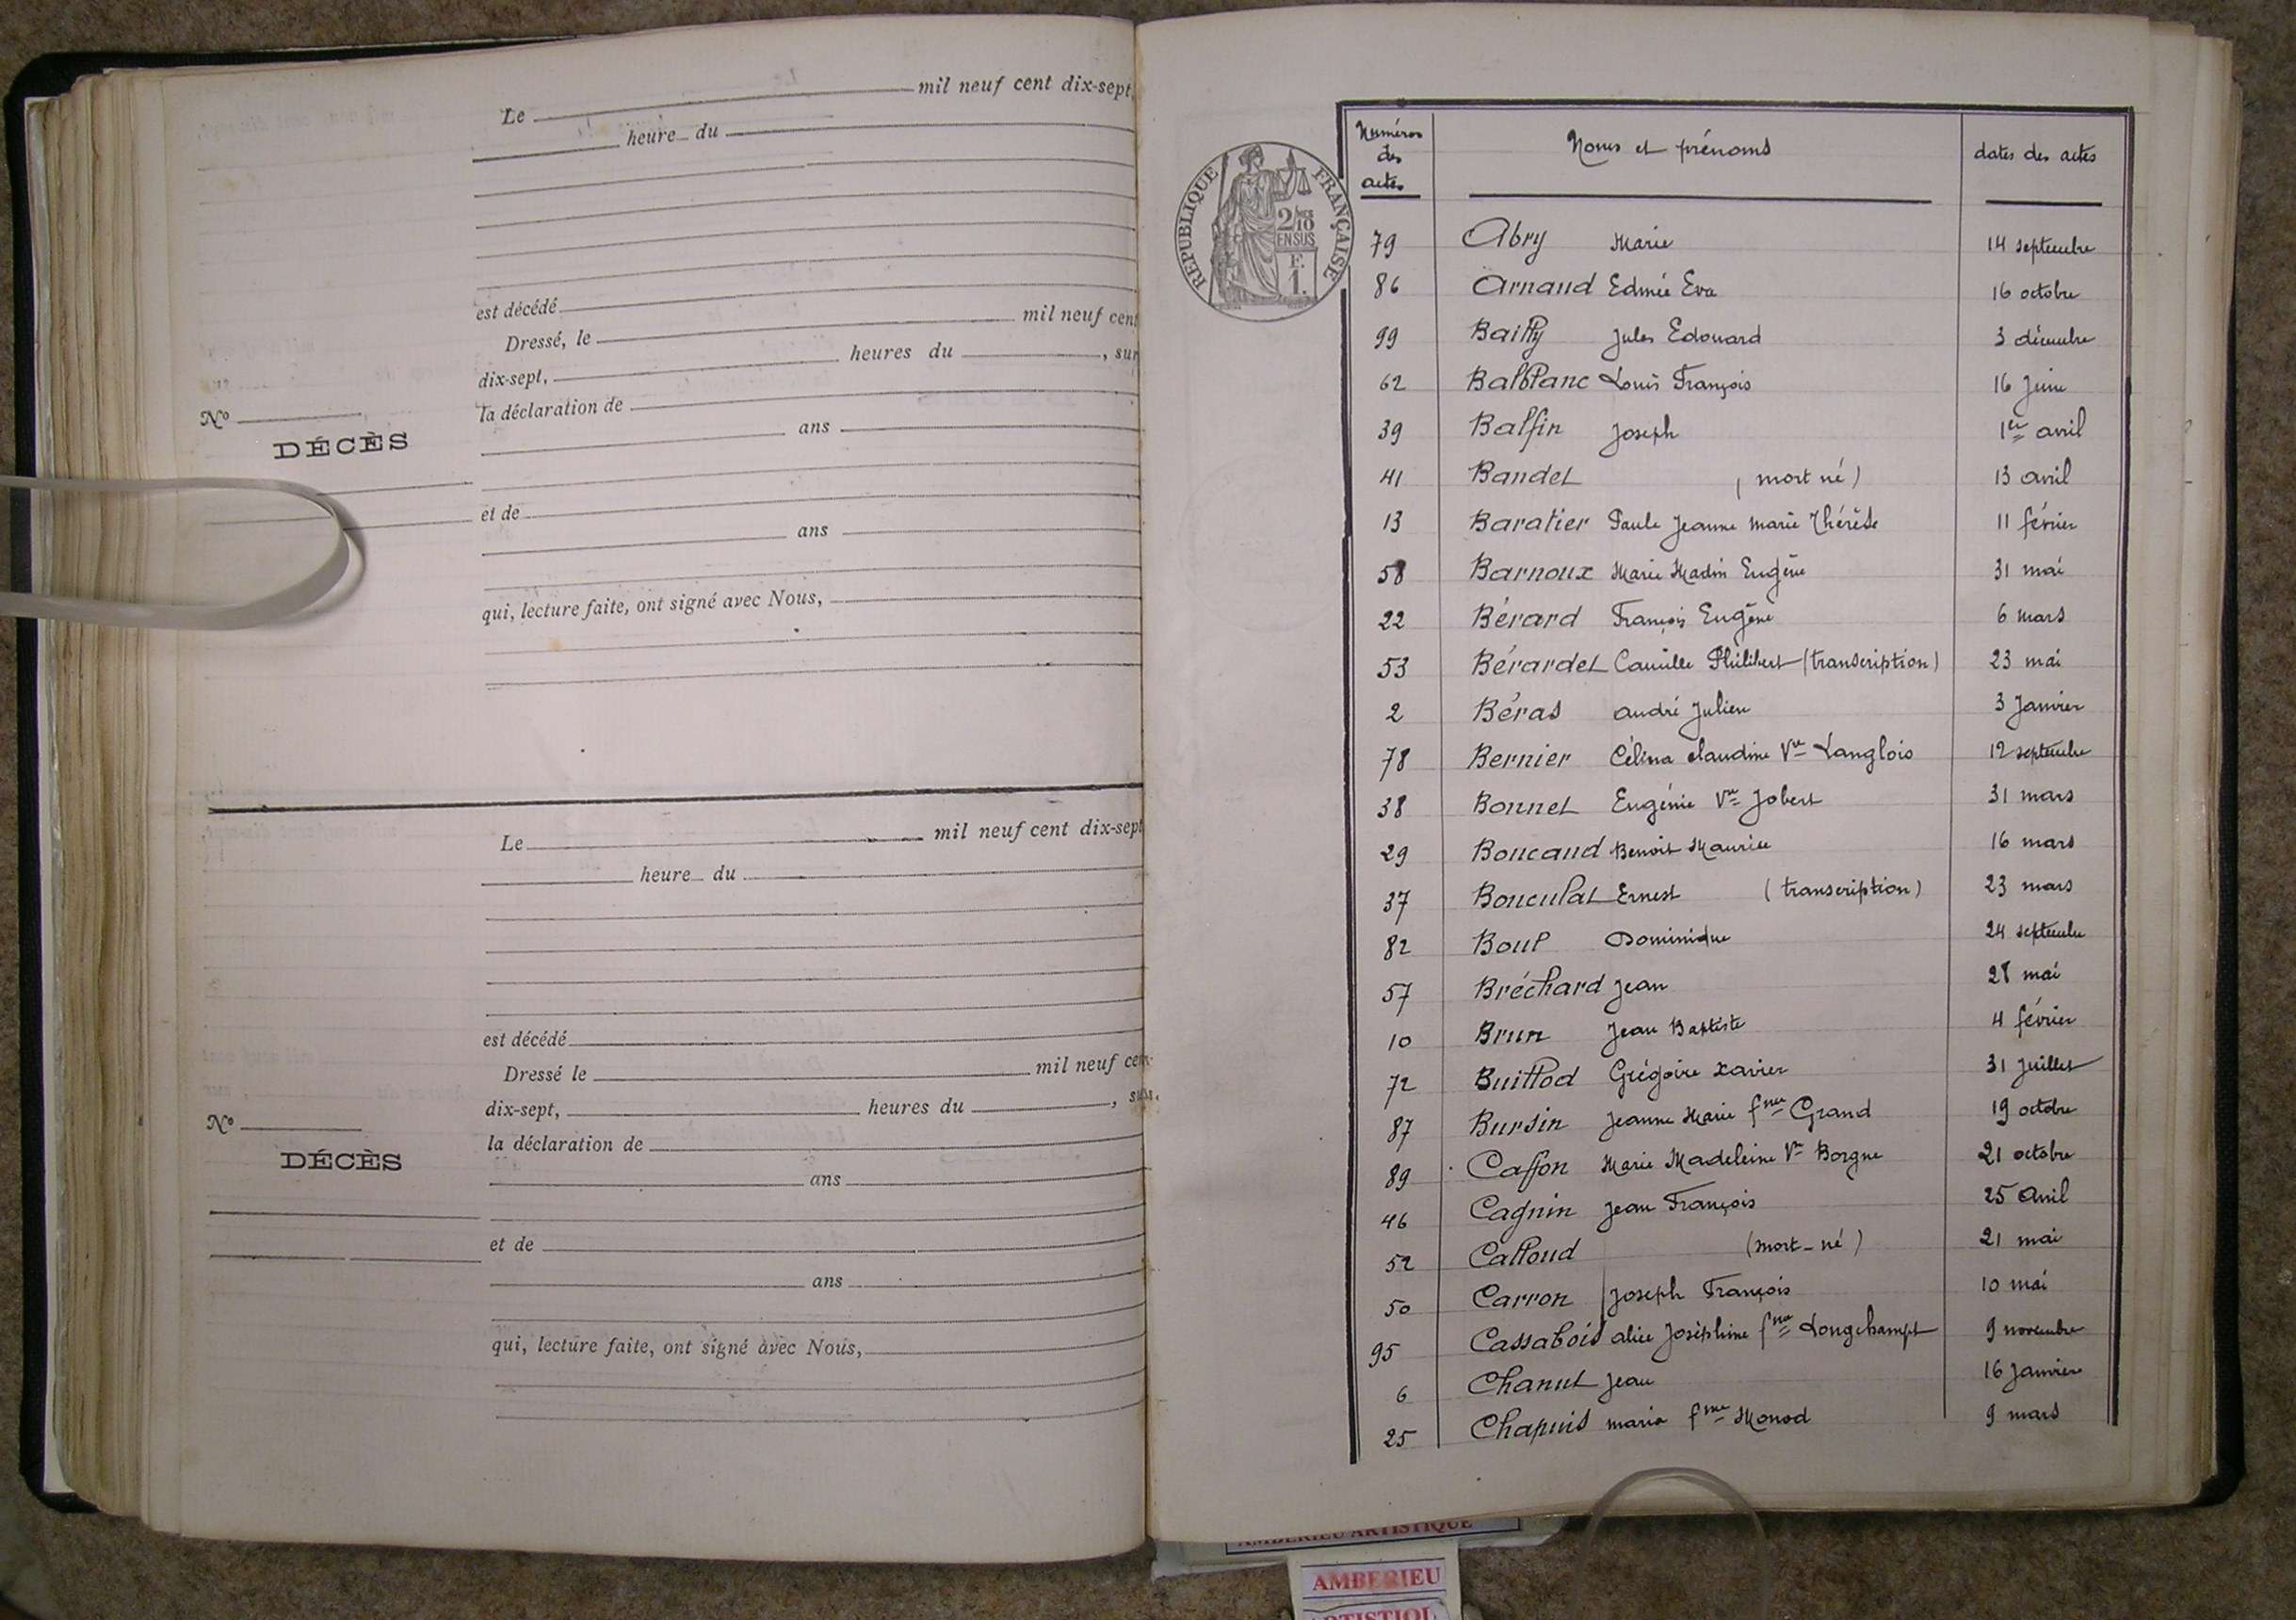 Le mil neuf cent dix-sept,
heure du
est décédé
Dressé, le mil neuf cent
dix-sept, heures du , sur
la déclaration de
ans
N°
DÉCÈS
et de
ans
qui, lecture faite, ont signé avec Nous,
Le mil neuf cent dix-sept
heure du
est décédé
Dressé le mil neuf cen
dix-sept, heures du , sur
la déclaration de
N°
DÉCÈS
ans
et de
ans
qui, lecture faite, ont signé avec Nous,
REPUBLIQUE FRANÇAISE
2/10
EN SUS
F.
1.
Numéros des actes Noms et prénoms dates des actes
79 Abry Marie 14 septembre
86 Arnaud Edmée Eva 16 octobre
99 Bailly Jules Edouard 3 décembre
62 Balblanc Louis François 16 Juin
39 Balfin Joseph 1er avril
41 Bandet (mort né) 13 avril
13 Baratier Paule Jeanne Marie Thérèse 11 février
58 Barnoux Marie Eugène 31 mai
22 Bérard François Eugène 6 mars
53 Bérardet Camille Philibert (transcription) 23 mai
2 Béras André Julien 3 Janvier
78 Bernier Célina Claudine Vve Langlois 12 septembre
38 Bonnet Eugénie Vve Jobert 31 mars
29 Boucaud Benoit Maurice 16 mars
37 Bouculat Ernest (transcription) 23 mars
82 Boul Dominique 24 septembre
57 Bréchard Jean 28 mai
10 Brun Jean Baptiste 4 février
72 Buillod Grégoire Xavier 31 Juillet
87 Bursin Jeanne Marie fme Grand 19 octobre
89 Caffon Marie Madeleine Ve Borgne 21 octobre
46 Cagnin Jean François 25 Avril
52 Calloud (mort-né) 21 mai
50 Carron Joseph François 10 mai
95 Cassabois Alice Joséphine fme Longchampt 9 novembre
6 Chanut Jean 16 Janvier
25 Chapuis Maria fme Monod 9 mars
AMBERIEU ARTISTIQUE
AMBERIEU